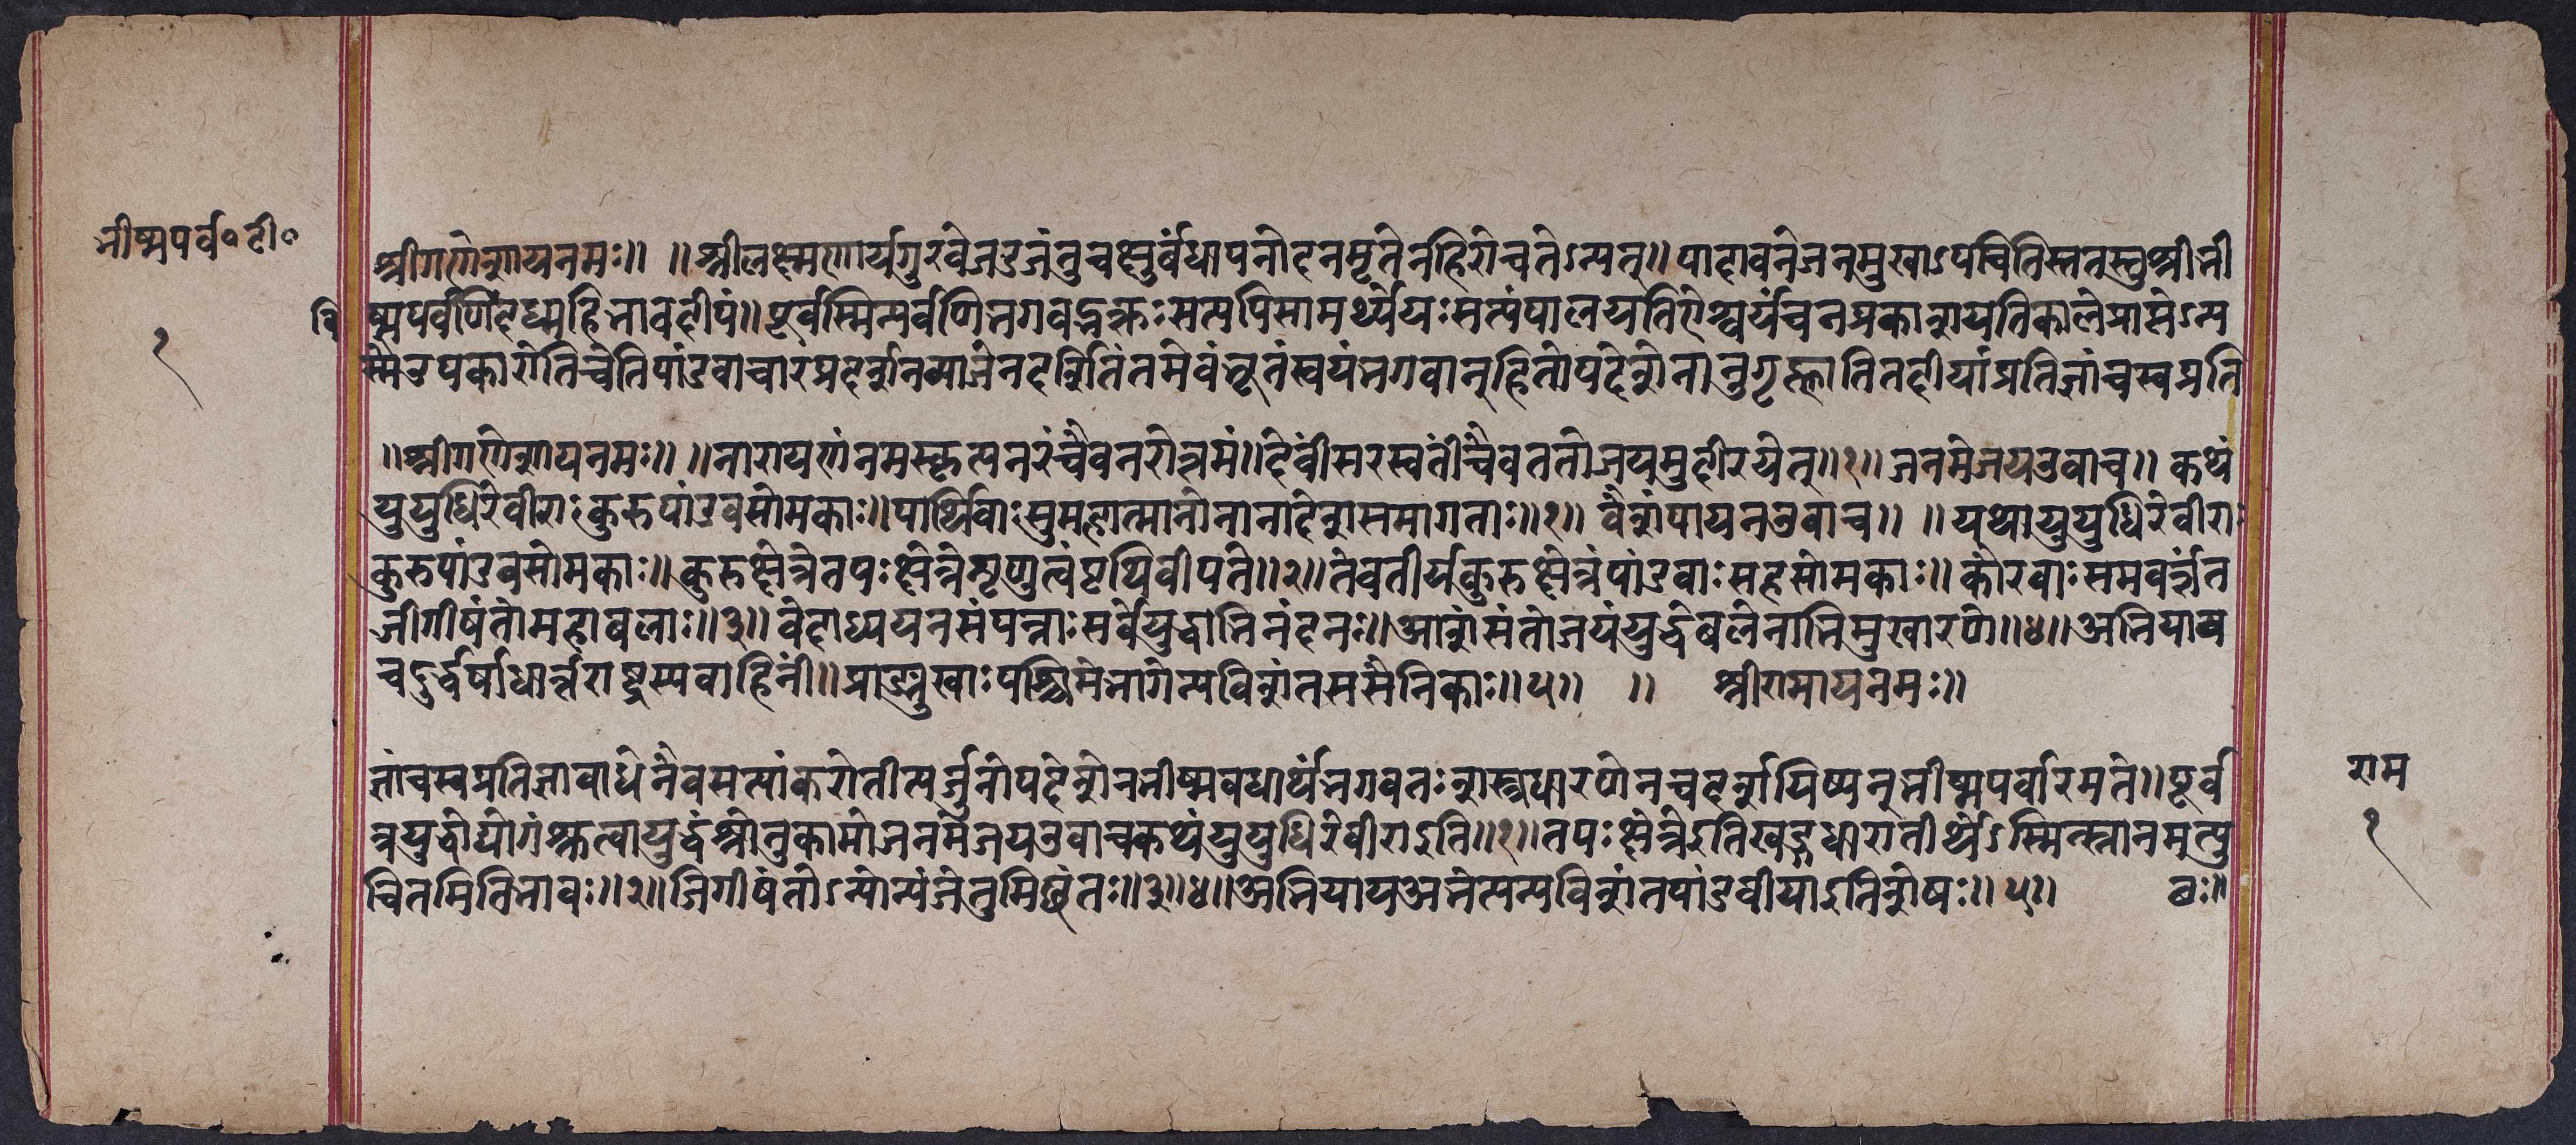 भीष्मपर्व॰टी॰
१
श्रीगणेशायनमः॥ ॥श्रीलक्ष्मणार्यगुरवेजडजंतुचक्षुर्बंधापनोदनमृतेनहिरोचतेऽन्यत्॥पादावनेजनुमुखाऽपचितिस्ततस्तुश्रीभी
वि
ष्मपर्वणिदध्महिभावदीपं॥पूर्वस्मिन्पर्वणिभगवद्भक्तःसत्यपिसामर्थ्येयःसत्यंपालयतिऐश्वर्यंचनप्रकाशयतिकालेप्राप्तेऽन्य
स्मैउपकारोतिचेतिपांडवाचारप्रदर्शनव्याजेनदर्शितिंतमेवंभूतंस्वयंभगवान्हितोपदेशेनानुगृह्णातितदीयांप्रतिज्ञांचस्वप्रति
॥श्रीगणेशायनमः॥ ॥नारायणंनमस्कृत्यनरंचैवनरोत्तमं॥देवींसरस्वतींचैवततोजयमुदीरयेत्॥१॥जनमेजयउवाच॥ कथं
युयुधिरेवीराःकुरुपांडवसोमकाः॥पार्थिवाःसुमहात्मानोनानादेशसमागताः॥१॥ वैशंपायनउवाच॥ ॥यथायुयुधिरेवीराः
कुरुपांडवसोमकाः॥कुरुक्षेत्रेतपःक्षेत्रेशृणुत्वंपृथिवीपते॥२॥तेवतीर्यकुरुक्षेत्रंपांडवाःसहसोमकाः॥कौरवाःसमवर्त्तंत
जीगीषंतोमहाबलाः॥३॥वेदाध्ययनसंपन्नाःसर्वेयुद्धाभिनंदनः॥आशंसंतोजयंयुद्धेबलेनाभिमुखारणे॥४॥अभियाय
चदुर्द्धर्षांधार्त्तराष्ट्रस्यवाहिनीं॥प्राङ्मुखाःपश्चिमेभागेन्यविशंतससैनिकाः॥५॥ ॥ श्रीरामायनमः॥
ज्ञांचस्वप्रतिज्ञाबाधेनैवसत्यांकरोतीत्यर्जुनोपदेशेनभीष्मवधार्थंभगवतःशस्त्रधारणेनचदर्शयिष्यन्भीष्मपर्वारभते॥पूर्व
त्रयुद्धोद्योगंश्रुत्वायुद्धंश्रोतुकामोजनमेजयउवाचकथंयुयुधिरेवीराइति॥१॥तपःक्षेत्रेइतिखड्गधारातीर्थेऽस्मिन्स्नानमत्यु
चितमितिभावः॥२॥जिगीषंतोऽन्योन्यंजेतुमिछंतः॥३॥४॥अभियायअभेत्यन्यविशंतपांडवीयाइतिशेषः॥५॥ वः॥
राम
१